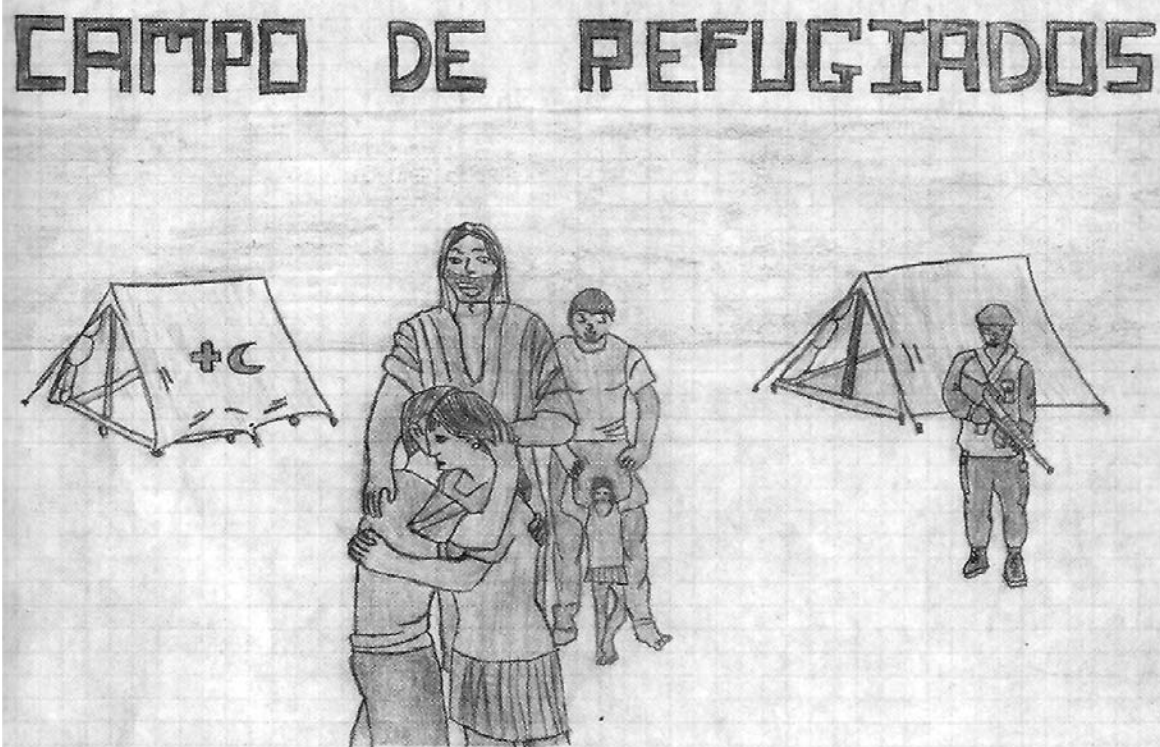 CAMPO DE REFUGIADOS